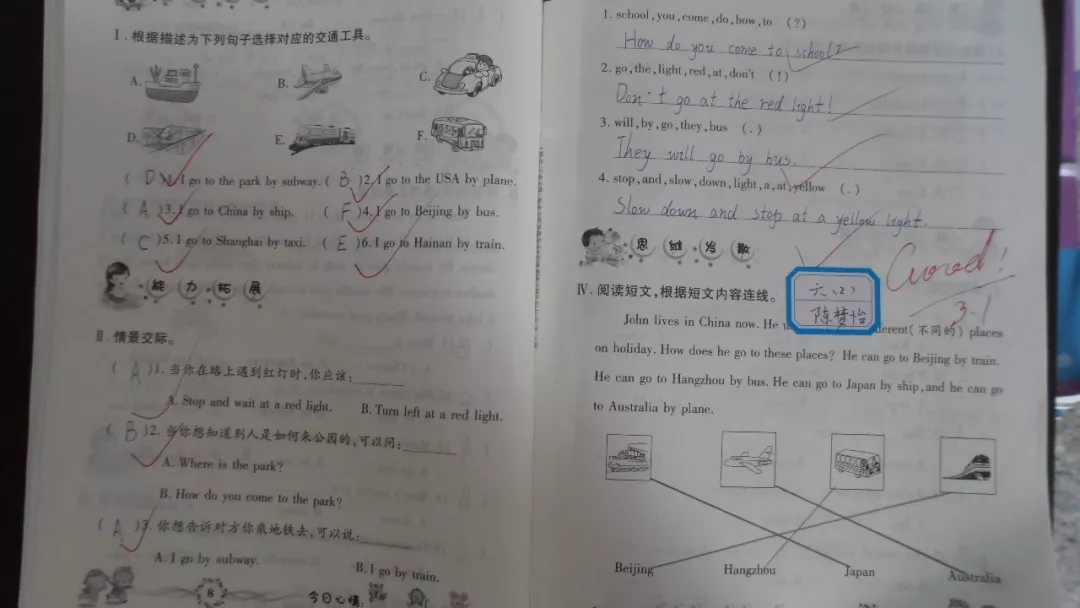 I. 根据描述为下列句子选择对应的交通工具。
A. B. C.
D. E. F.
( D )1. I go to the park by subway. ( B )2. I go to the USA by plane.
( A )3. I go to China by ship. ( F )4. I go to Beijing by bus.
( C )5. I go to Shanghai by taxi. ( E )6. I go to Hainan by train.
能力拓展
II. 情景交际。
( A )1. 当你在路上遇到红灯时,你应该:______
A. Stop and wait at a red light. B. Turn left at a red light.
( B )2. 当你想知道别人是如何来公园的,可以问:______
A. Where is the park?
B. How do you come to the park?
( A )3. 你想告诉对方你乘地铁去,可以说:______
A. I go by subway. B. I go by train.
8 今日心情
1. school,you,come,do,how,to (?)
How do you come to school?
2. go,the,light,red,at,don't (!)
Don't go at the red light!
3. will,by,go,they,bus (.)
They will go by bus.
4. stop,and,slow,down,light,a,at,yellow (.)
Slow down and stop at a yellow light.
思维发散
Good!
3.1
六(2)
陈梦怡
IV. 阅读短文,根据短文内容连线。
John lives in China now. He erent(不同的) places
on holiday. How does he go to these places? He can go to Beijing by train.
He can go to Hangzhou by bus. He can go to Japan by ship,and he can go
to Australia by plane.
Beijing Hangzhou Japan Australia